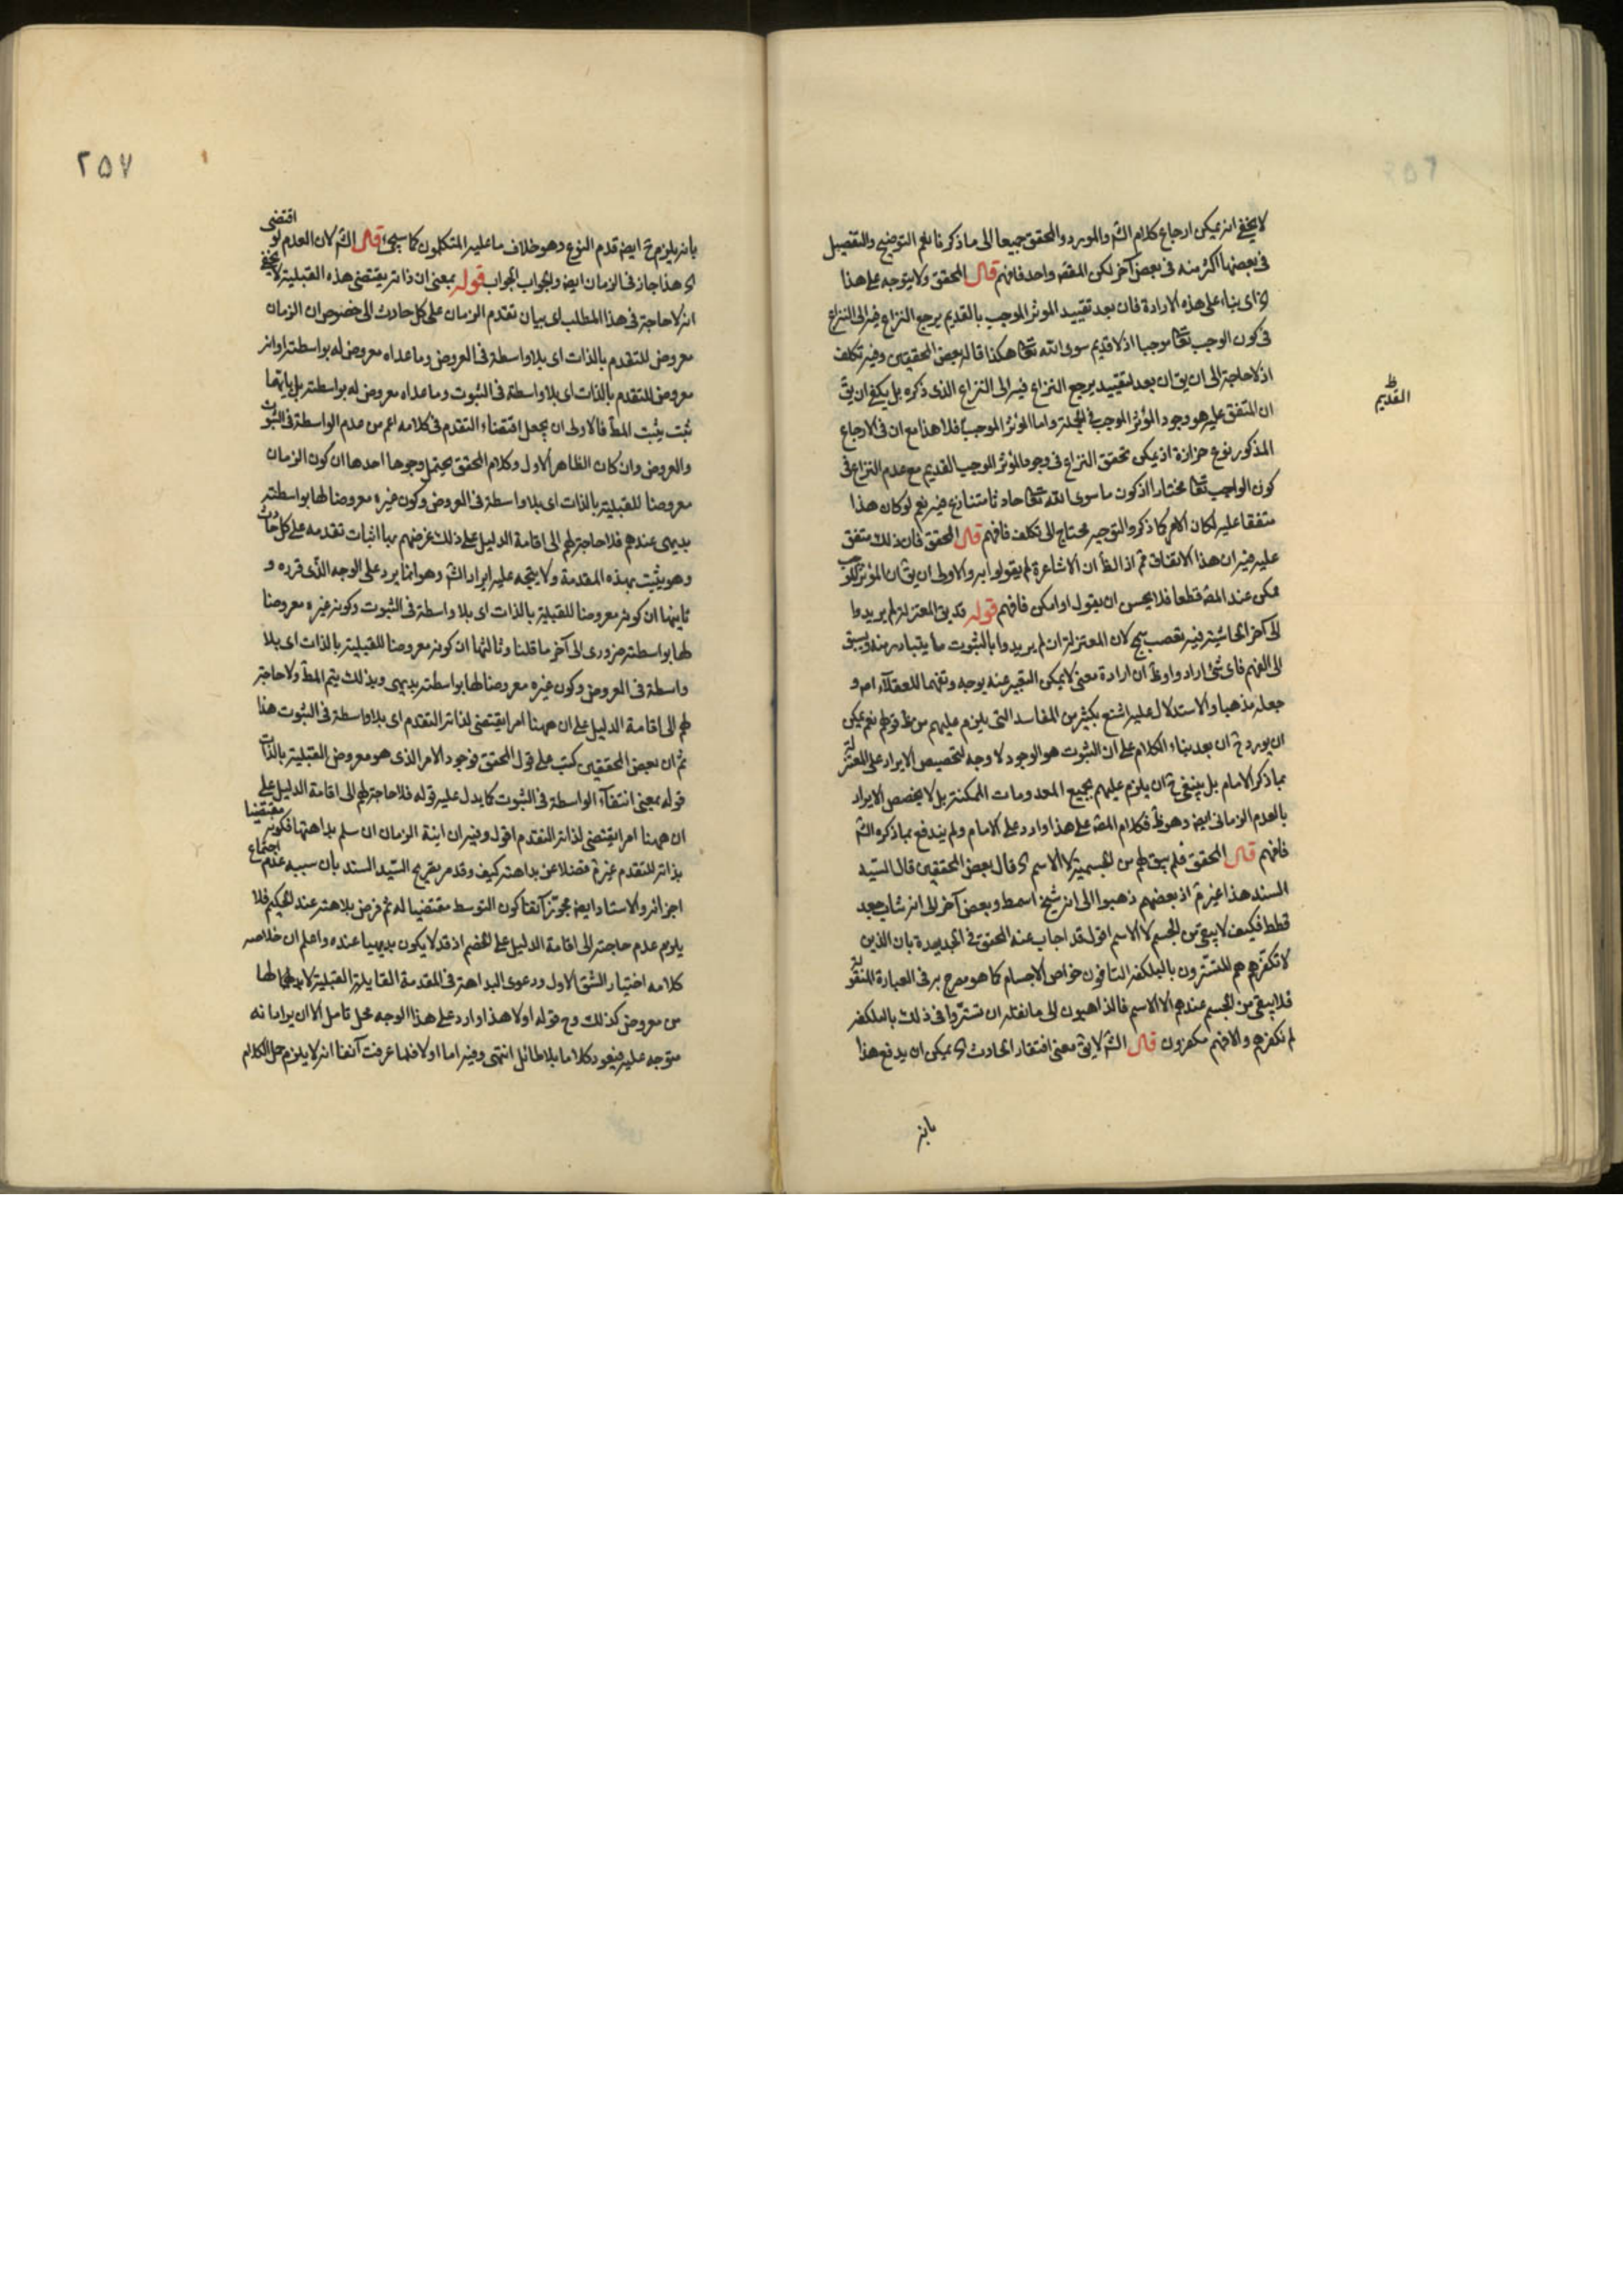 لا يخفى انه يمكن ارجاع كلام الشـ والمورد والمحقق جميعا الى ما ذكرنا نعم التوضيح والتفصيل
فى بعضها اكثر منه فى بعض آخر لكن المقصـ واحد فافهم قال المحقق ولا يتوجه على هذا
اى بناء على هذه الارادة فان بعد تقييد الموثر الموجب بالقديم يرجع النزاع فيه الى النزاع
فى كون الوجب تعـ موجبا اذ لا قديم سوى الله تعـ هكذا قاله بعض المحققين وفيه تكلف
اذ لا حاجة الى ان يق ان بعد التقييد يرجع النزاع فيه الى النزاع الذى ذكره بل يكفى ان يق
القديم
ان المتفق عليه هو وجود المؤثر الموجب فى الجملة واما المؤثر الموجب فلا هذا مع ان فى الارجاع
المذكور نوع حزازة اذ يمكن تحقق النزاع فى وجود المؤثر الموجب القديم مع عدم النزاع فى
كون الواجب تعـ مختارا اذ كون ما سوى الله تعـ حادثا متنازع فيه نعم لو كان هذا
متفقا عليه لكان الامر كما ذكر والتوجيه محتاج الى تكلف فافهم قال المحقق فان ذلك متفق
عليه فيه ان هذا الاتفاق مم اذ الظ ان الاشاعرة لم يقولوا به والاولى ان يق ان المؤثر الموجب
ممكن عند المصـ قطعا فلا يحسن ان يقول او امكن فافهم قوله قد يق المعتزلة لم يريدوا
الى آخر الحاشية فيه تعصب سمج لان المعتزلة ان لم يريدوا بالثبوت ما يتبادر منه ويسبق
الى الفهم فاى شئ ارادوا وظ ان ارادة معنى لا يمكن التعبير عنه بوجه وتفهما للعقلاء امر و
جعله مذهبا والاستدلال عليه اشنع بكثير من المفاسد التى يلزم عليهم من ظ قولهم نعم يمكن
ان يورد ح ان بعد بناء الكلام على ان الثبوت هو الوجود لا وجه لتخصيص الايراد على المعتزلة
بما ذكر الامام بل ينبغى ح ان يلزم عليهم بجميع المعدومات الممكنة بل لا يخصص الايراد
بالعدم الزمانى ايضـ وهو ظ فكلام المصـ على هذا وارد على الامام ولم يندفع بما ذكره الشـ
فافهم قال المحقق فلم يبق لهم من الجسمية الا الاسم اى قال بعض المحققين قال السيد
السند هذا غير مم اذ بعضهم ذهبوا الى انه شيخ اسمط وبعض آخر الى انه شاب جعد
قطط فكيف لا يبقى من الجسم الا الاسم اقول قد اجاب عنه المحقق فى الجديدة بان الذين
لا تكفرهم هم المتسترون بالبلكفه النافون خواص الاجسام كما هو مصرح به فى العبارة المنقولة
فلا يبقى من الجسم عندهم الا الاسم فالذاهبون الى ما نقله ان تستروا فى ذلك بالبلكفه
لم نكفرهم والا فهم مكفرون قال الشـ لا يق معنى افتقار الحادث اى يمكن ان يدفع هذا
بانه
٢٥٧
بانه يلزم ح ايضـ قدم النوع وهو خلاف ما عليه المتكلمون كما سيجئ قال الشـ لان العدم لو اقتضى
اى هذا جاز فى الزمان ايضـ والجواب الجواب قوله بمعنى ان ذاته يقتضى هذه القبلية لا يخفى
انه لا حاجة فى هذا المطلب اى بيان تقدم الزمان على كل حادث الى خصوص ان الزمان
معروض للتقدم بالذات اى بلا واسطة فى العروض وما عداه معروض له بواسطته او انه
معروض للتقدم بالذات اى بلا واسطة فى الثبوت وما عداه معروض له بواسطته بل بايتهما
ثبت يثبت المط فالاولى ان يجعل اقتضاء التقدم فى كلامه اعم من عدم الواسطة فى الثبوت
والعروض وان كان الظاهر الاول وكلام المحقق يحتمل وجوها احدها ان كون الزمان
معروضا للقبلية بالذات اى بلا واسطة فى العروض وكون غيره معروضا لها بواسطته
بديهى عندهم فلا حاجة لهم الى اقامة الدليل على ذلك غرضهم مما اثبات تقدمه على كل حادث
وهو يثبت بهذه المقدمة ولا يتجه عليه ايراد الشـ وهو انما يرد على الوجه الذى قرره و
ثانيها ان كونه معروضا للقبلية بالذات اى بلا واسطة فى الثبوت وكونه غيره معروضا
لها بواسطته ضرورى الى آخر ما قلنا وثالثها ان كونه معروضا للقبلية بالذات اى بلا
واسطة فى العروض وكون غيره معروضا لها بواسطته بديهى وبذلك يتم المط ولا حاجة
لهم الى اقامة الدليل على ان ههنا امرا يقتضى لذاته التقدم اى بلا واسطة فى الثبوت هذا
ثم ان بعض المحققين كتب على قول المحقق فوجود الامر الذى هو معروض القبلية بالذات
قوله بمعنى انتفاء الواسطة فى الثبوت كما يدل عليه قوله فلا حاجة لهم الى اقامة الدليل على
ان ههنا امرا يقتضى لذاته التقدم اقول وفيه ان اينة الزمان ان سلم بداهتها فكونه مقتضيا
بذاته للتقدم غير مم فضلا عن بداهته كيف وقد مر تصريح السيد السند بان سببه عدم اجتماع
اجزائه والاستاد ايضـ مجوز آنفا كون التوسط مقتضيا له ثم فرض بداهته عند الحكيم فلا
يلزم عدم حاجته الى اقامة الدليل على الخصم اذ قد لا يكون بديهيا عنده واعلم ان خلاصه
كلامه اختيار الشق الاول ودعوى البداهة فى المقدمة القايلة القبلية لابد لها
من معروض كذلك وح قوله اولا هذا وارد على هذا الوجه محل تامل الا ان يراد انه
متوجه عليه فيعود كلاما بلا طائل انتهى وفيه اما اولا فلما عرفت آنفا انه لا يلزم حمل الكلام